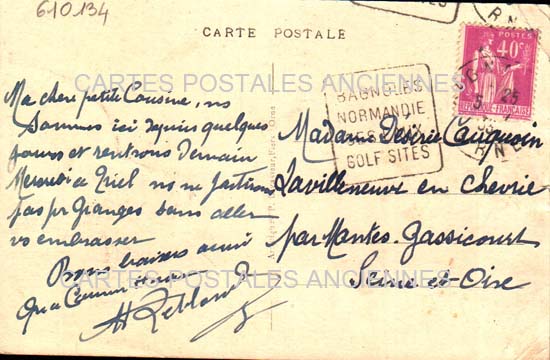 610134
CARTE POSTALE
POSTES
40c
RÉPUBLIQUE FRANÇAISE
BAGNOLES
NORMANDIE
GOLF SITES
CARTES POSTALES ANCIENNES
Ma chère petite Cousine, ns
Sommes ici depuis quelques
jours et rentrons Demain
Mercredi à Triel ns ne partirons
pas pr Granges sans aller
vs embrasser
Bons baisers ainsi
qu'à Commun
Madame Désirée Cauquoin
Lavilleneuve en Chevrie
par Mantes-Gassicourt
Seine-et-Oise
CARTES POSTALES ANCIENNES